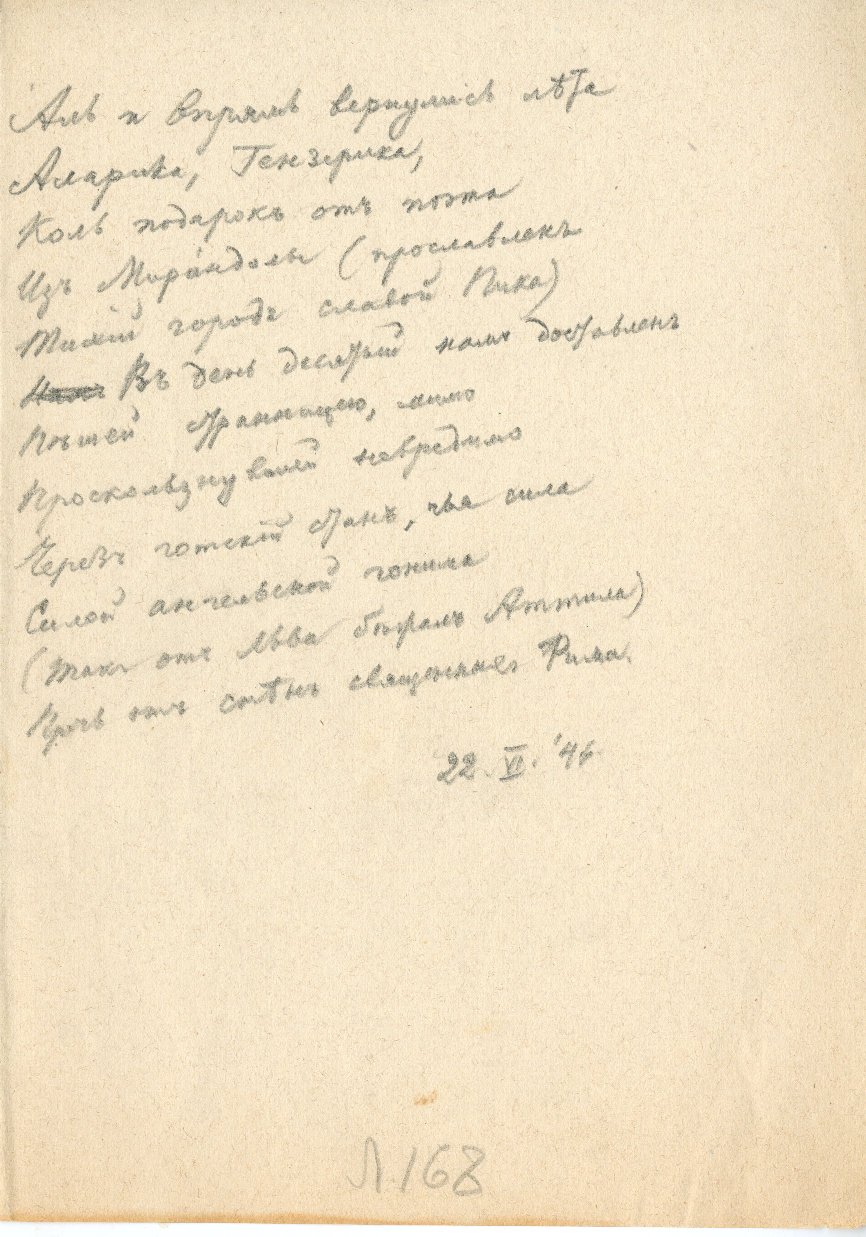 Аль и впрямь вернулись лѣта
Алариха, Гензериха,
Коль подарокъ отъ поэта
Изъ Мирáндолы (прославленъ
Тихій городъ славой Пика)
Въ день десятый намъ доставленъ
Пѣшей странницею, мимо
Проскользнувшей невредимо
Черезъ готскій станъ, чья сила
Силой ангельской гонима
(Такъ отъ Льва бѣжалъ Аттила)
Прочь отъ стѣнъ священныхъ Рима.
22. VI. '44
Л 168